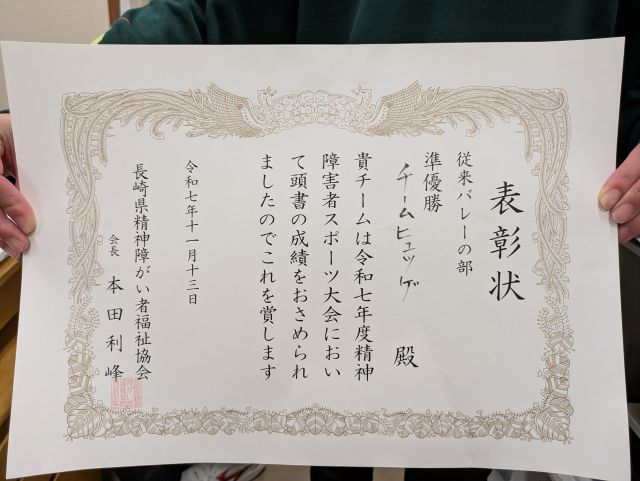 表彰状
従来バレーの部
準優勝
チームヒュッゲ 殿
貴チームは令和七年度精神
障害者スポーツ大会におい
て頭書の成績をおさめられ
ましたのでこれを賞します
令和七年十一月十三日
長崎県精神障がい者福祉協会
会長 本田利峰